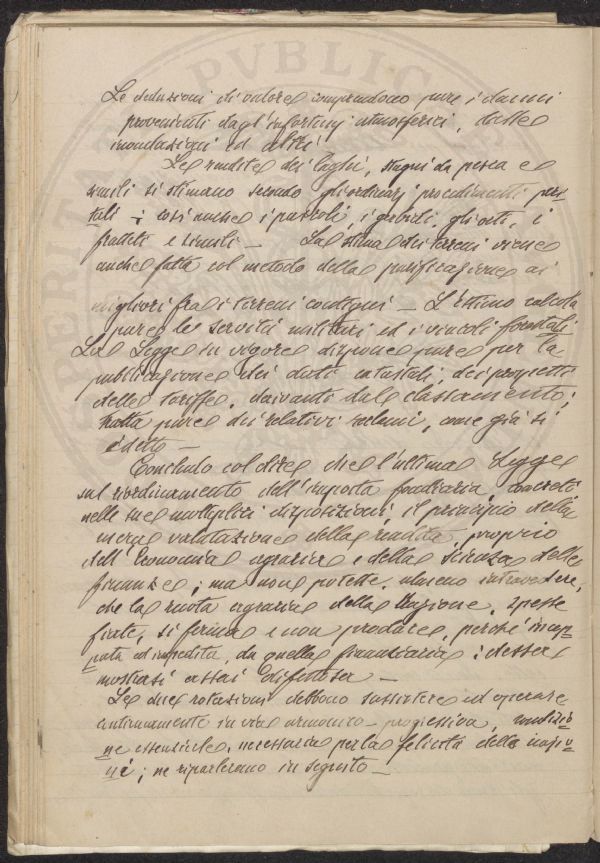 Le deduzioni di valore comprendono pure i danni
provenienti dagl'infortunj atmosferici, dalle
inondazioni ed altri
Le rendite dei laghi, stagni da pesca e
simili si stimano secondo gli ordinarj procedimenti
tali; così invece i pascoli, i gerbidi, gli orti, i
frutteti e simili — La stima dei terreni viene
anche fatta col metodo della parificazione ai
migliori fra i terreni contigui — L'estimo calcola
pure le servitù militari ed i vincoli forestali
La Legge in vigore dispone pure per la
pubblicazione dei dati catastali, dei prospetti
delle tariffe, derivanti dal classamento;
tratta pure dei relativi reclami, come già si
è detto —
Concludo col dire che l'ultima Legge
sul riordinamento dell'imposta fondiaria, concretò
nelle sue molteplici disposizioni, il principio della
mera valutazione della rendita, proprio
dell'Economia agraria e della Scienza delle
finanze; ma non potette, almeno intravedere,
che la ruota agraria della Nazione, spesse
fiate, si ferma e non produce, perché incep-
pata ed impedita, da quella finanziaria; dessa
mostrasi assai difettosa —
Le due rotazioni debbono sussistere ed operare
continuamente in via armonico-progressiva, condizio-
ne essenziale, necessaria per la felicità delle nazio-
ni; ne riparleremo in seguito —
PUBLIC
VERITAS